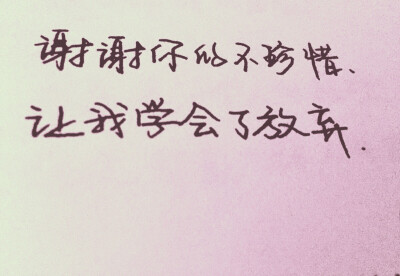 谢谢你的不珍惜、
让我学会了放弃.